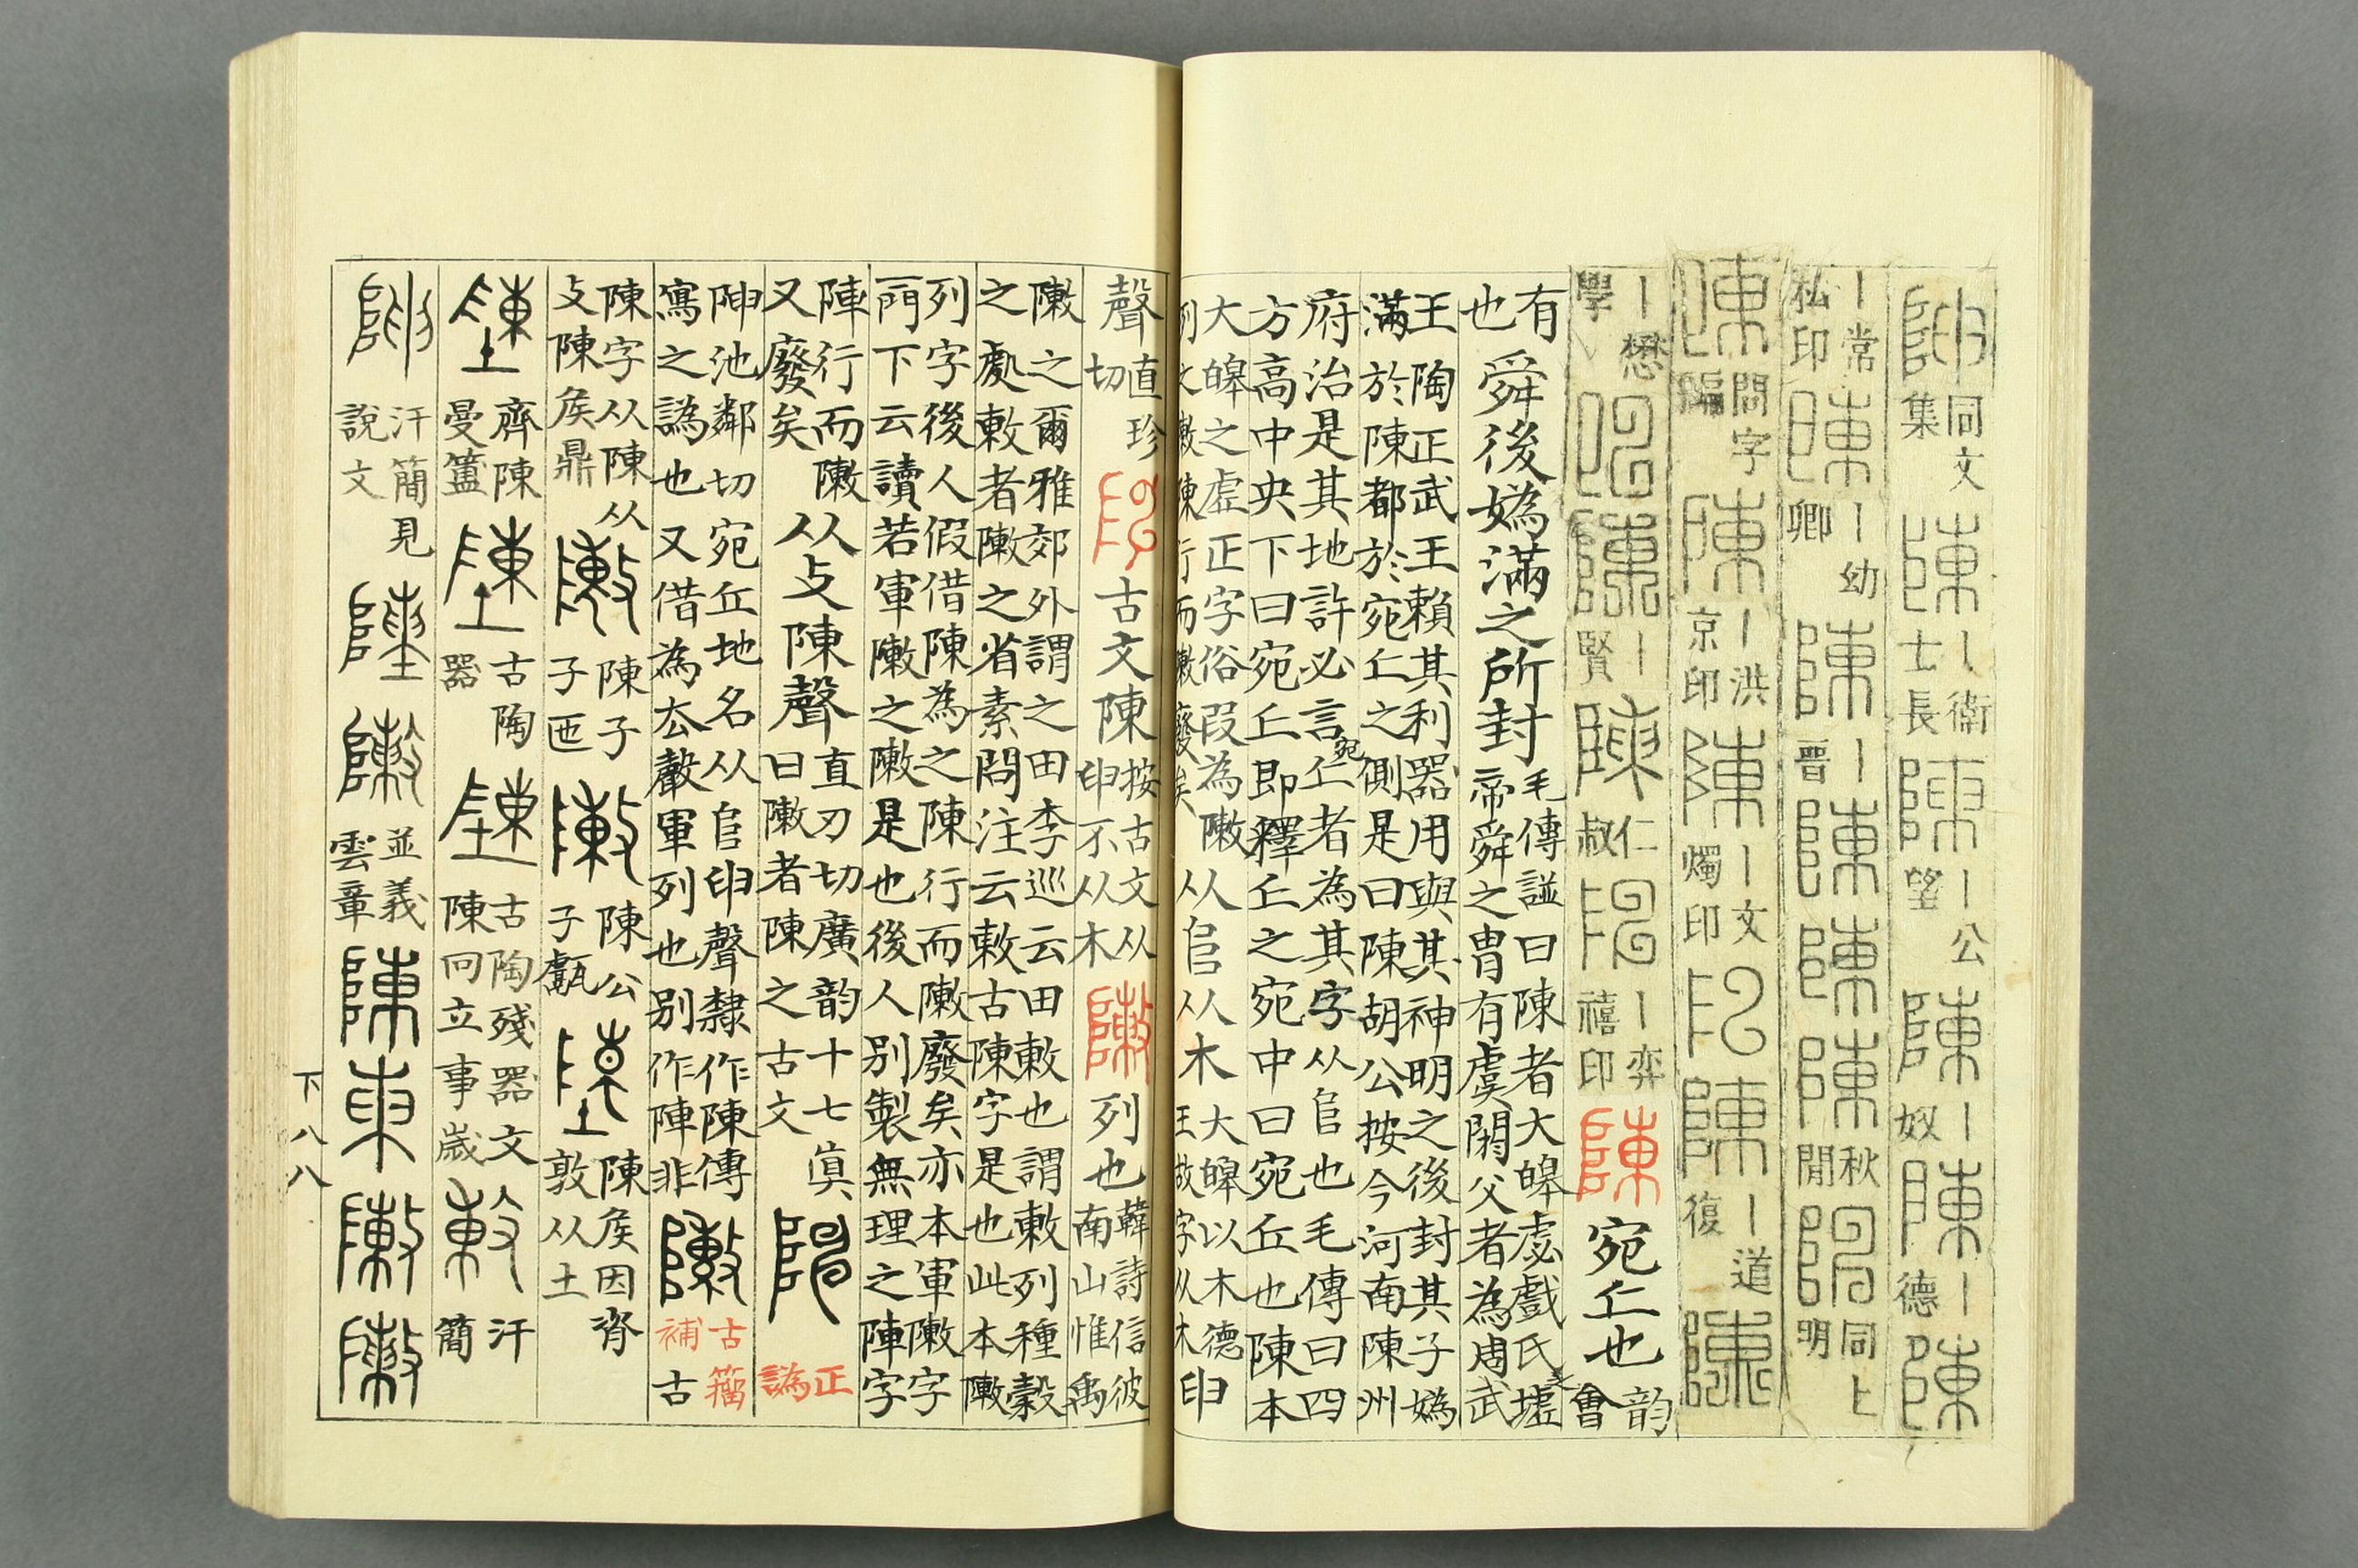 同文
集
陳
ー衛
士長
陳
ー公
望
陳
ー
奴
陳
ー
德
陳
ー常
私印
陳
ー幼
卿
陳
ー
晋
陳
陳
陳
秋
閒
同上
明
陳
問字
編
陳
ー洪
京印
陳
ー文
燭印
陳
ー道
復
陳
ー懋
學
陳
ー
賢
陳
仁
叔
ー弈
禧印
陳
宛丘也
韵
會
有
也
舜後媯滿之所封
毛傳諡曰陳者大皞虙戲氏之墟
帝舜之胄有虞閼父者為周武
王陶正武王賴其利器用與其神明之後封其子媯
滿於陳都於宛丘之側是曰陳胡公按今河南陳州
府治是其地許必言宛丘者為其字从𨸏也毛傳曰四
方高中央下曰宛丘即釋丘之宛中曰宛丘也陳本
大皞之虛正字俗叚為敶
列文敶陳行而敶廢矣
从𨸏从木
大皞以木德
王故字从木
𦥔
聲
直珍
切
古文陳
按古文从
𦥔不从木
敶
列也
韓詩信彼
南山惟禹
敶之爾雅郊外謂之田李巡云田敕也謂敕列種穀
之處敕者敶之省素問注云敕古陳字是也此本敶
列字後人假借陳為之陳行而敶廢矣亦本軍敶字
門下云讀若軍敶之敶是也後人别製無理之陣字
陣行而敶
又廢矣
从攴陳聲
直刃切廣韵十七眞
曰敶者陳之古文
正
譌
池鄰切宛丘地名从𨸏𦥔聲隸作陳傳
寫之譌也又借為厺聲軍列也别作陣非
敶
古籀
補
古
陳字从陳从
攴陳矦鼎
敶
陳子
子匜
敶
陳公
子甗
陳矦因脊
敦从土
齊陳
曼簠
古陶
器
古陶殘器文
陳向立事歲
汗
簡
汗簡見
說文
並義
雲章
陳
敶
敶
下八八